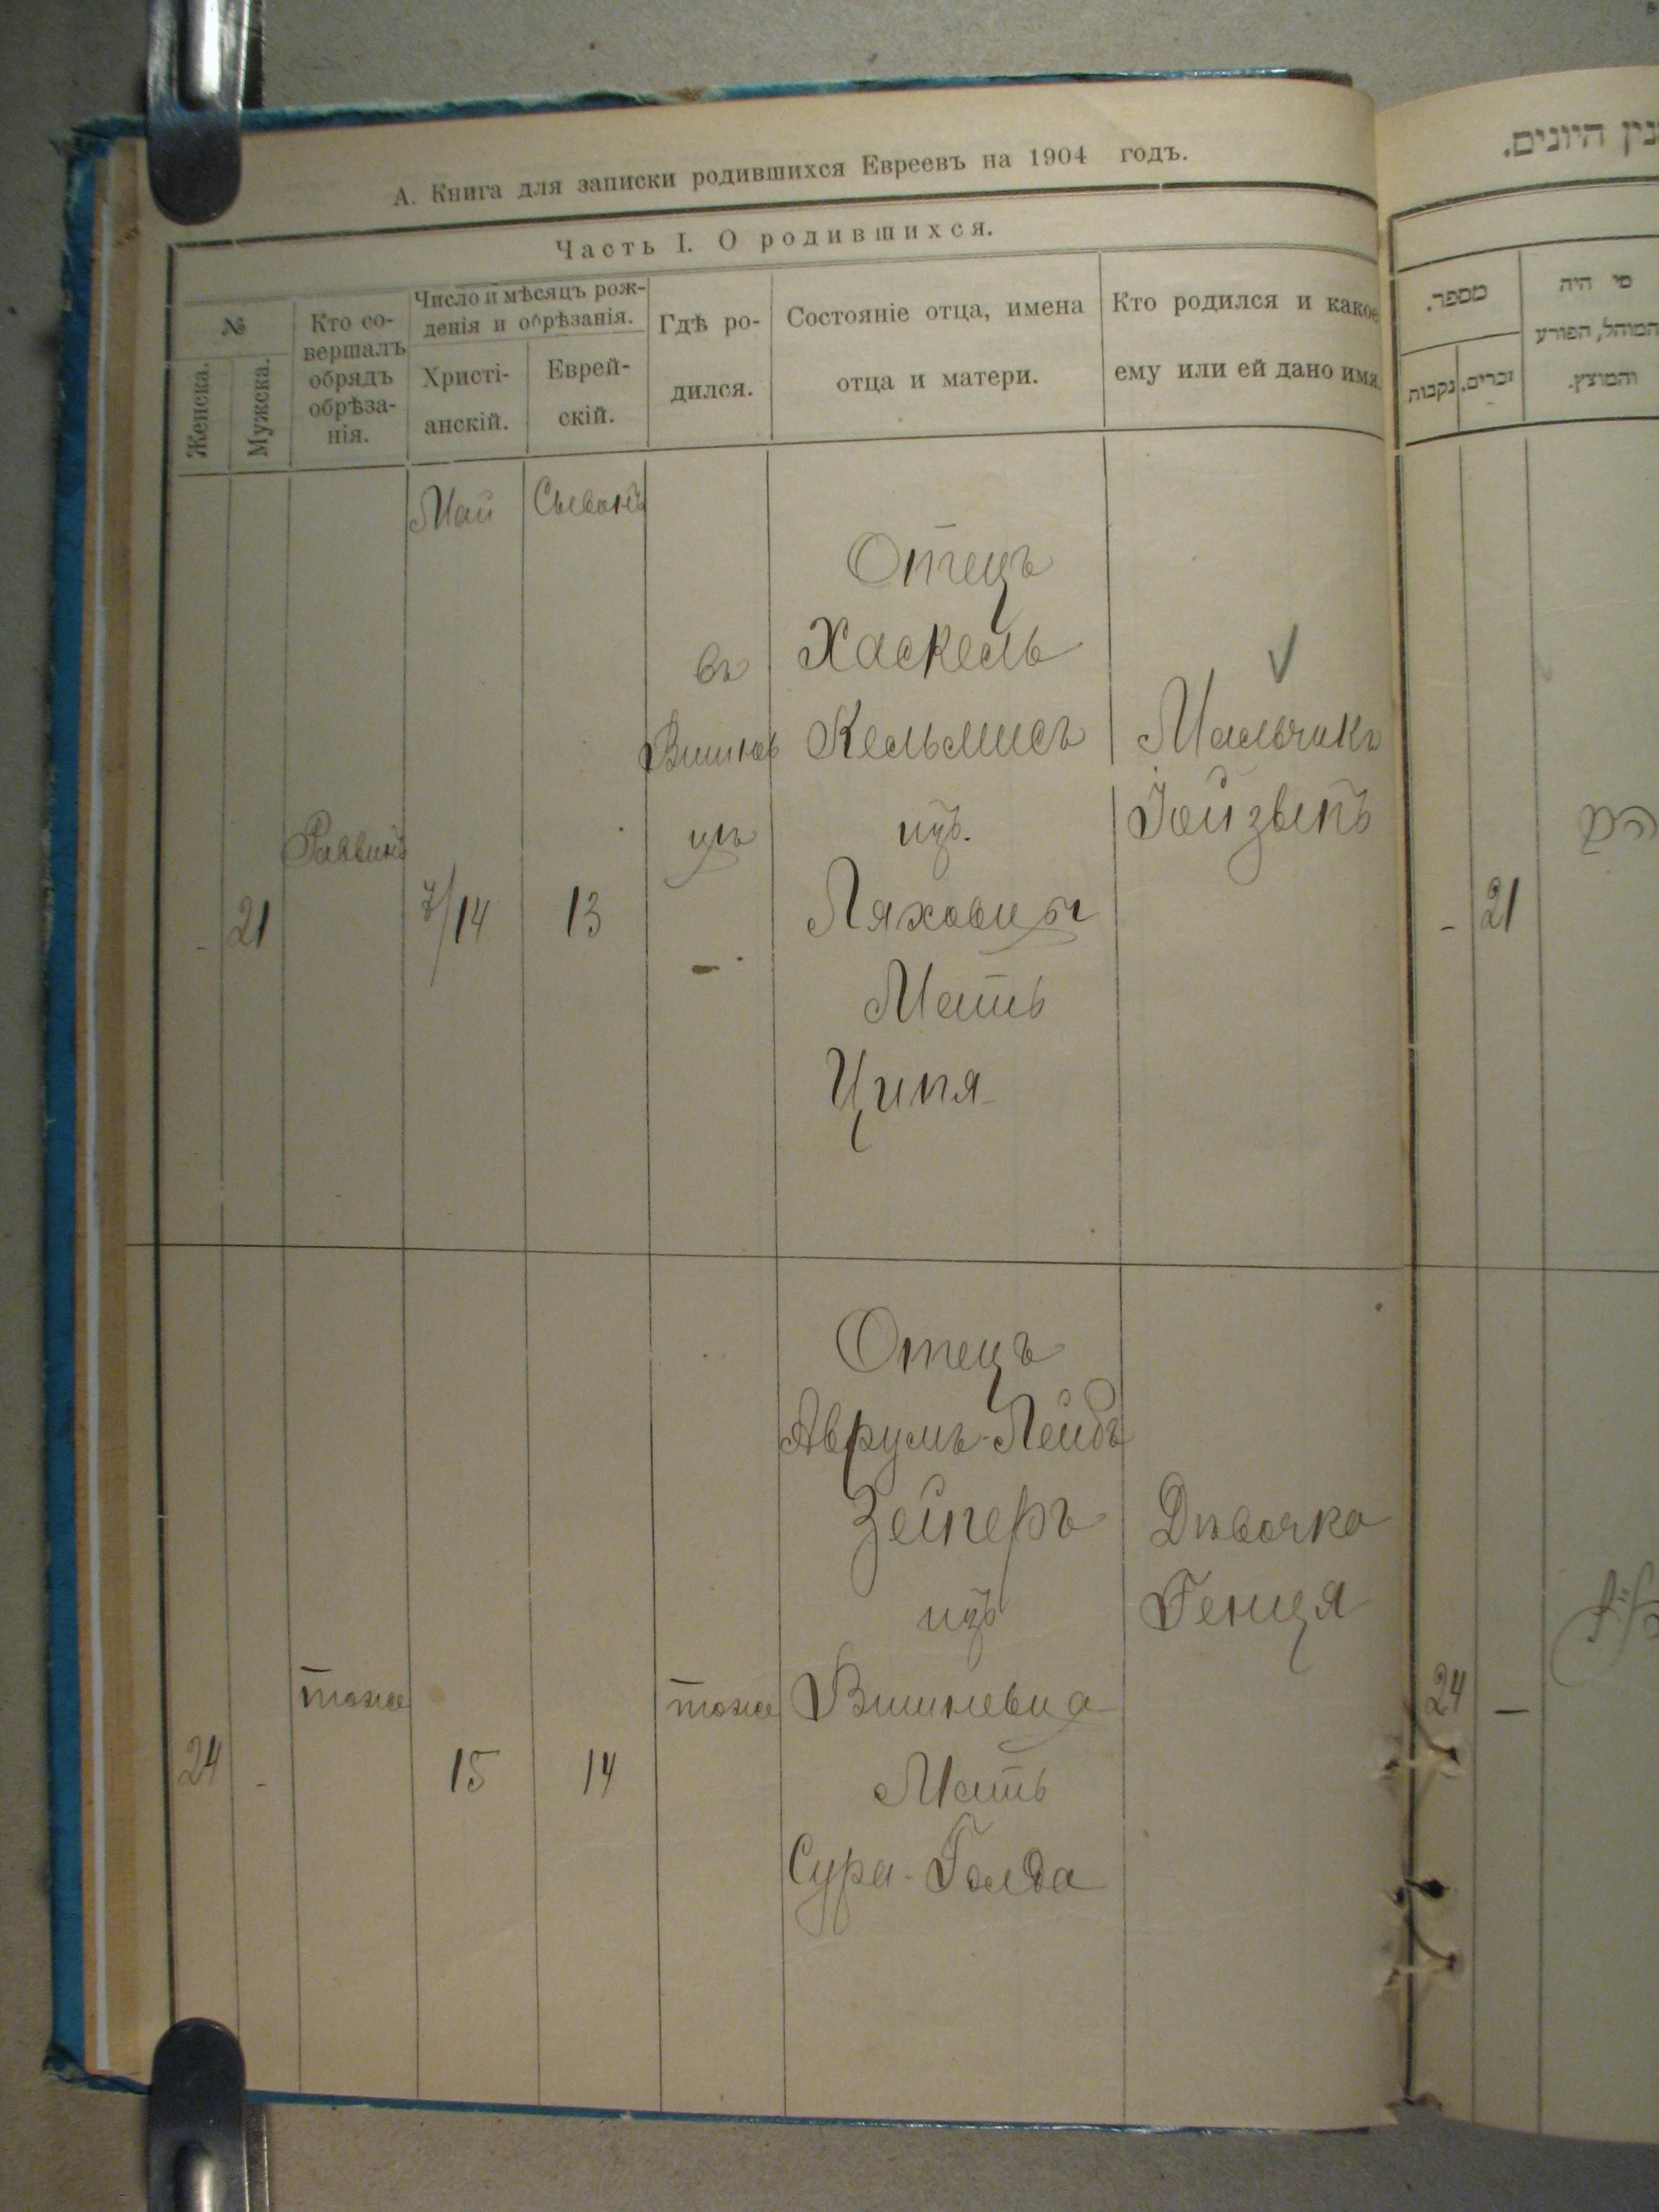 А. Книга для записки родившихся Евреевъ на 1904 годъ.
Часть I. О родившихся.
№
Женска.
Мужска.
Кто со-
вершалъ
обрядъ
обрѣза-
нія.
Число и мѣсяцъ рож-
денія и обрѣзанія.
Христі-
анскій.
Еврей-
скій.
Гдѣ ро-
дился.
Состояніе отца, имена
отца и матери.
Кто родился и какое
ему или ей дано имя.
Май
Сыванъ
-
21
Раввинъ
7/14
13
въ
Вишнев
цѣ
Отецъ
Хаскель
Кельмисъ
изъ.
Ляховцы
Мать
Ципя
Мальчикъ
Іойзыпъ
24
-
тоже
15
14
тоже
Отецъ
Аврумъ-Лейбъ
Зейгеръ
изъ
Вишневца
Мать
Сура-Голда
Дѣвочка
Генця
נין היונים.
מספר.
נקבות
זכרים.
מי היה
המוהל, הפורע
והמוצץ.
-
21
24
-